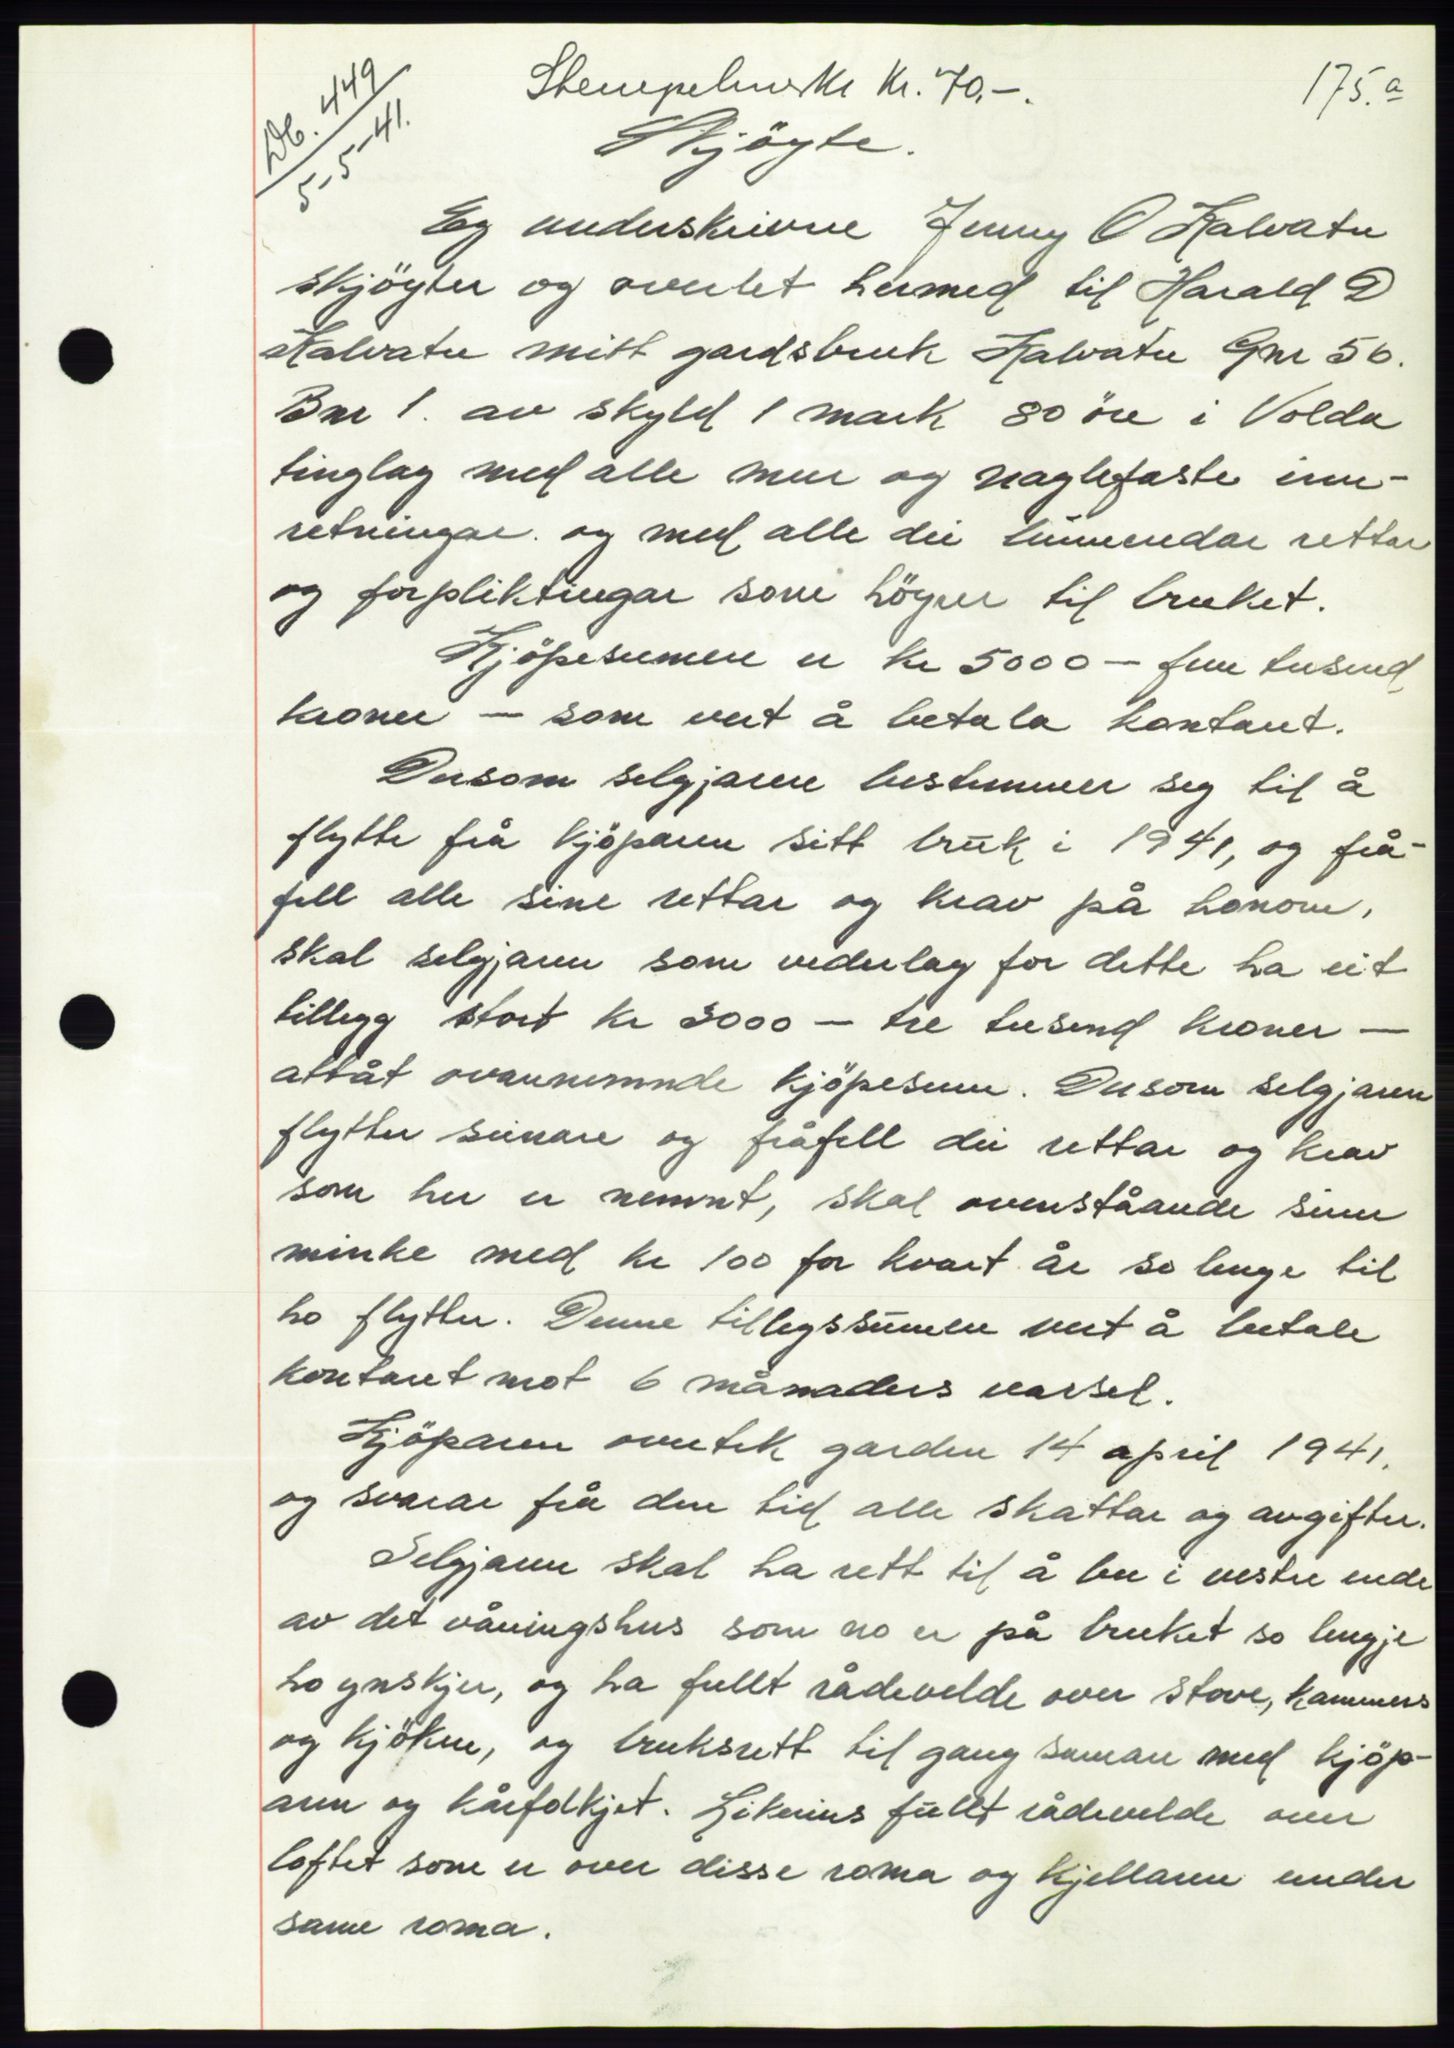 Db. 449
5-5-41.
Stempelmerke kr. 70,-.
175.a
Skjöyte.
Eg underskrivne Jenny O Kalvatn
skjöyter og overlet hermed til Harald D
Kalvatn mitt gardsbruk Kalvatn Gnr 56.
Bnr 1. av skyld 1 mark 80 öre i Volda
tinglag med alle mur og naglefaste inn-
retningar. og med alle dei rettar
og forpliktingar som höyrer til bruket.
Kjöpesumen er kr 5000 – fem tusend
kroner – som vert å betala kontant.
Dersom selgjaren bestemmer seg til å
flytte frå kjöparen sitt bruk i 1941, og frå-
fell alle sine rettar og krav på honom,
skal selgjaren som vederlag for dette ha eit
tillegg stort kr 3000 – tre tusend kroner –
attåt ovannemnde kjöpesum. Dersom selgjaren
flytter seinare og fråfell dei rettar og krav
som her er nemnt, skal ovenståande sum
minke med kr 100 for kvart år so lenge til
ho flytter. Denne tillegssumen vert å betale
kontant mot 6 månaders varsel.
Kjöparen overtek garden 14 april 1941.
og svarar frå den tid alle skattar og avgifter.
Selgjaren skal ha rett til å bu i vestre ende
av det våningshus som no er på bruket so lengje
ho ynskjer, og ha fullt rådevelde over stove, kammers
og kjöken, og bruksrett til gang saman med kjöp-
aren og kårfolkjet. Likeeins fullt rådevelde over
loftet som er over disse roma og kjellaren under
same roma.